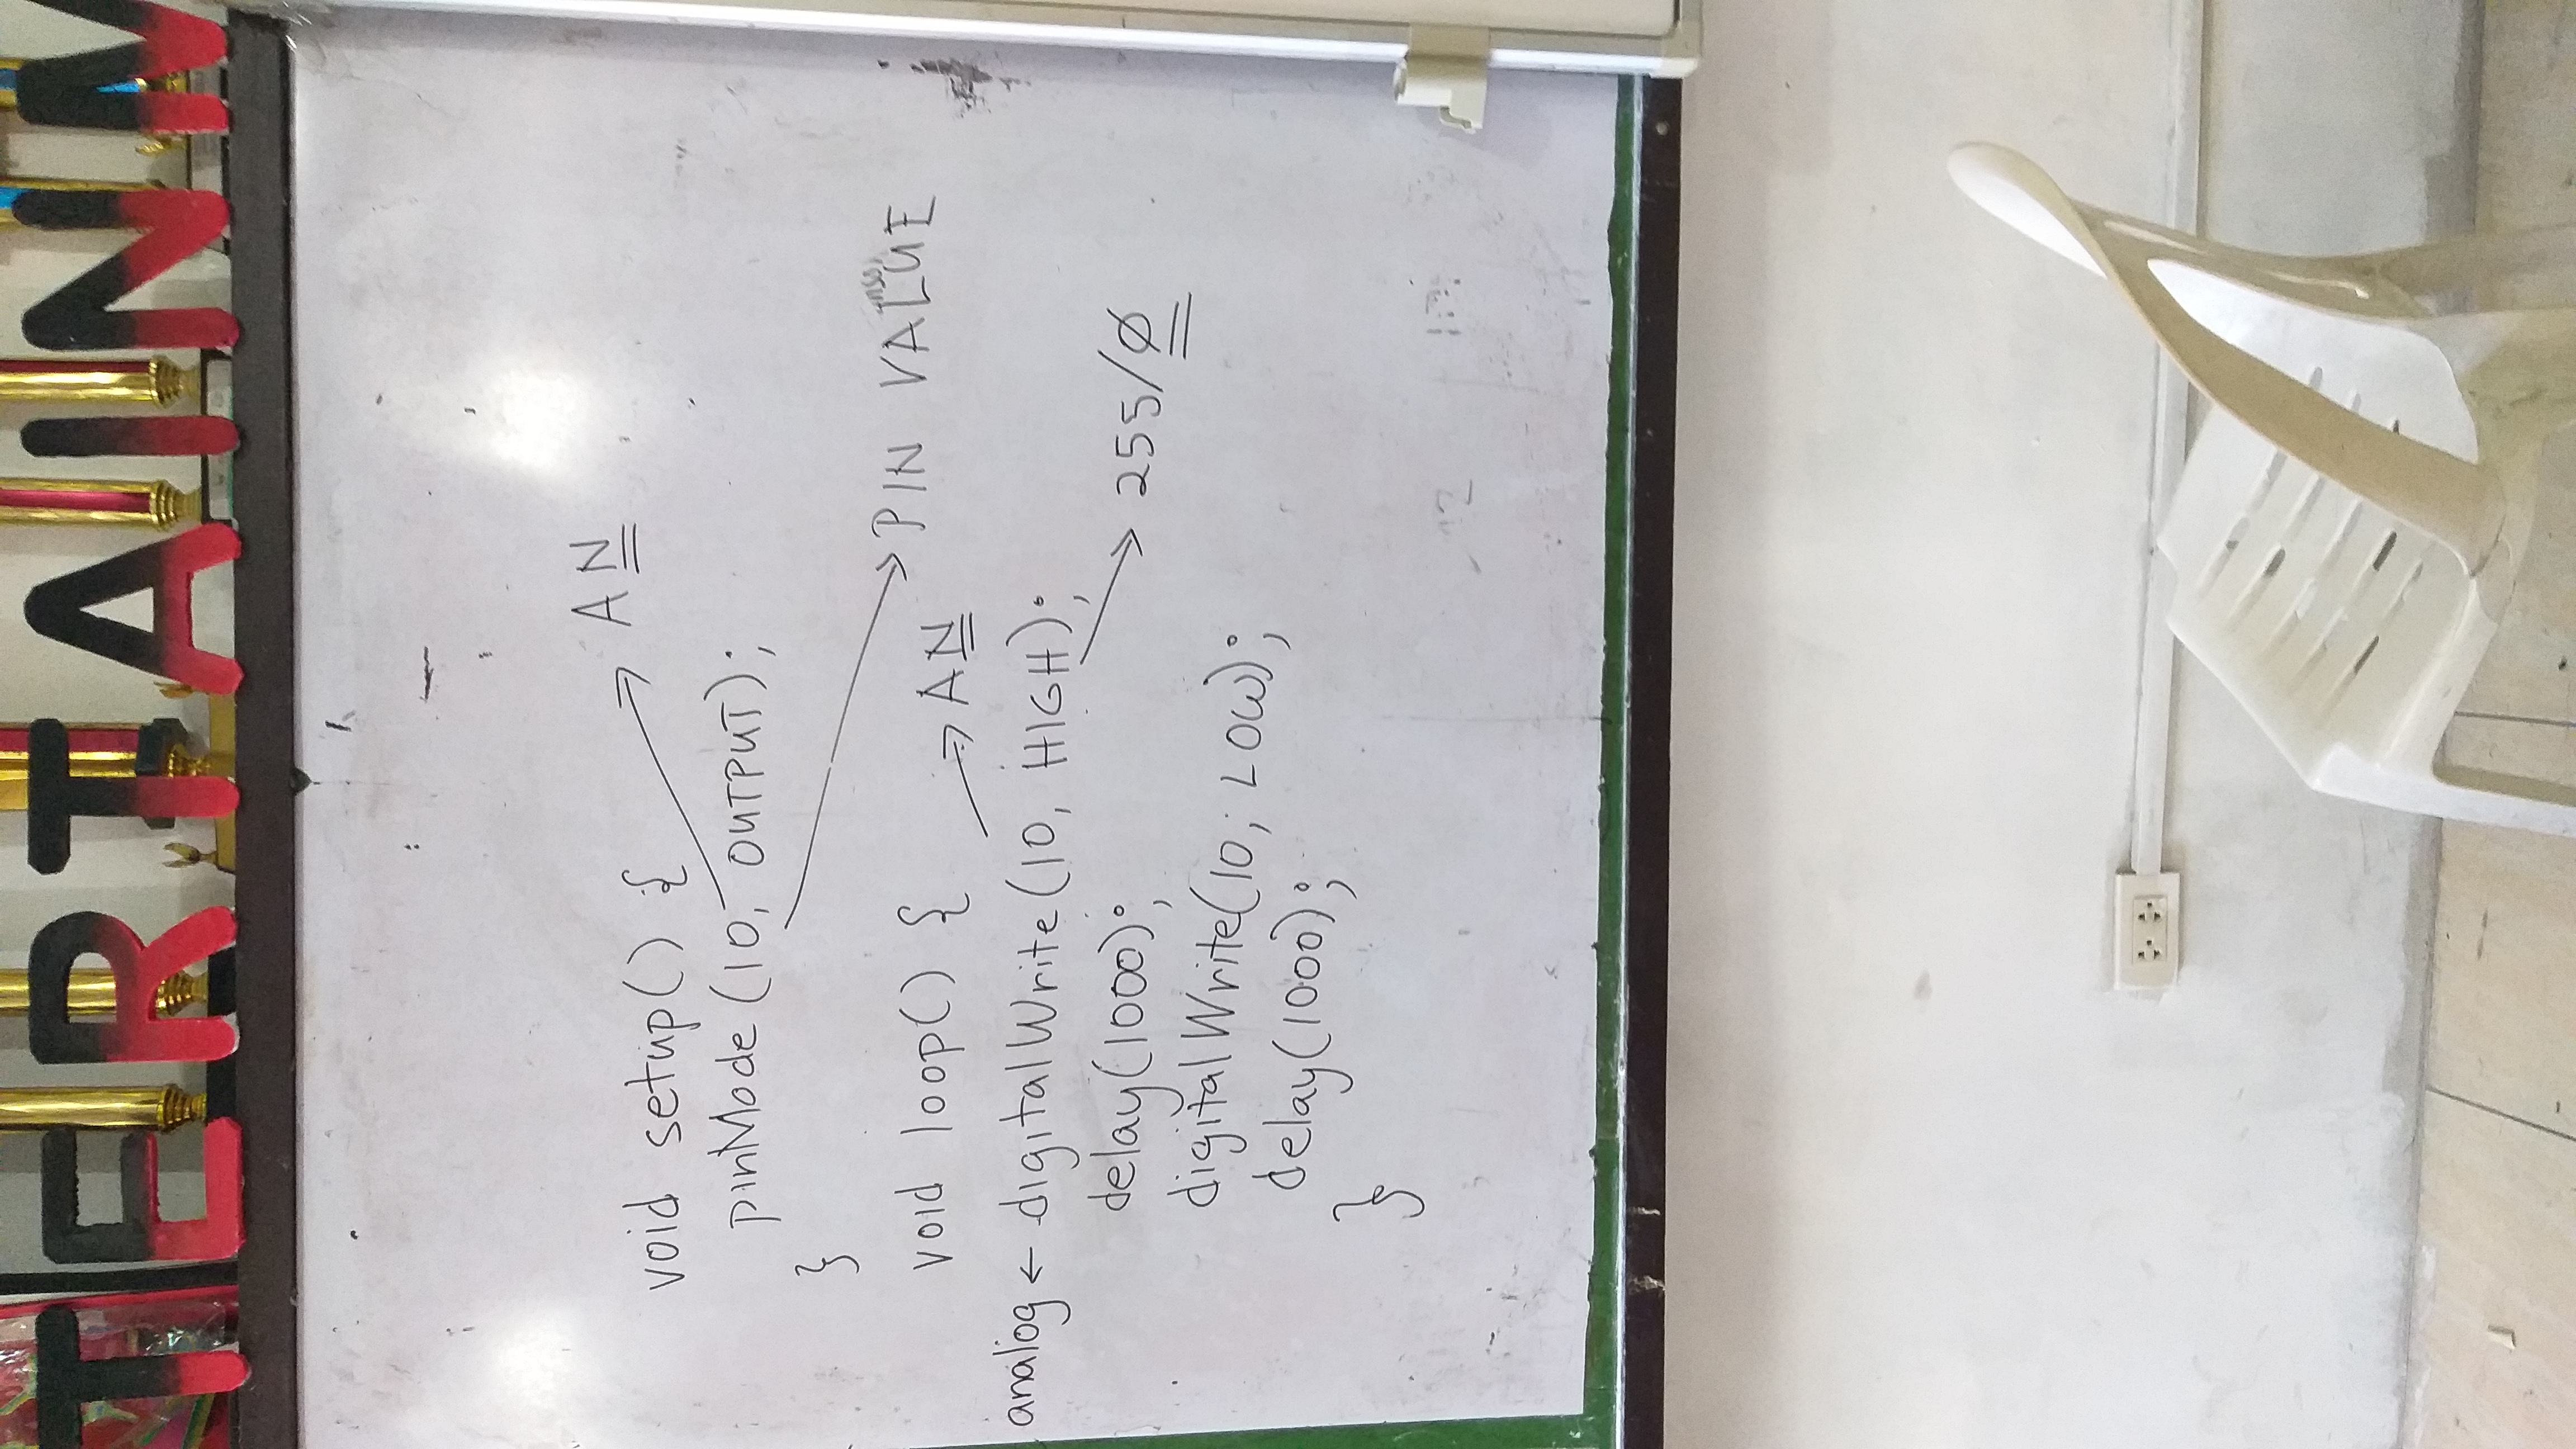 TERTAINM
AN
void setup() {
pinMode (10, OUTPUT);
}
PIN VALUE
void loop() {
AN
analog ← digitalWrite (10, HIGH);
delay(1000);
255/Ø
digitalWrite(10, LOW);
delay(1000);
}